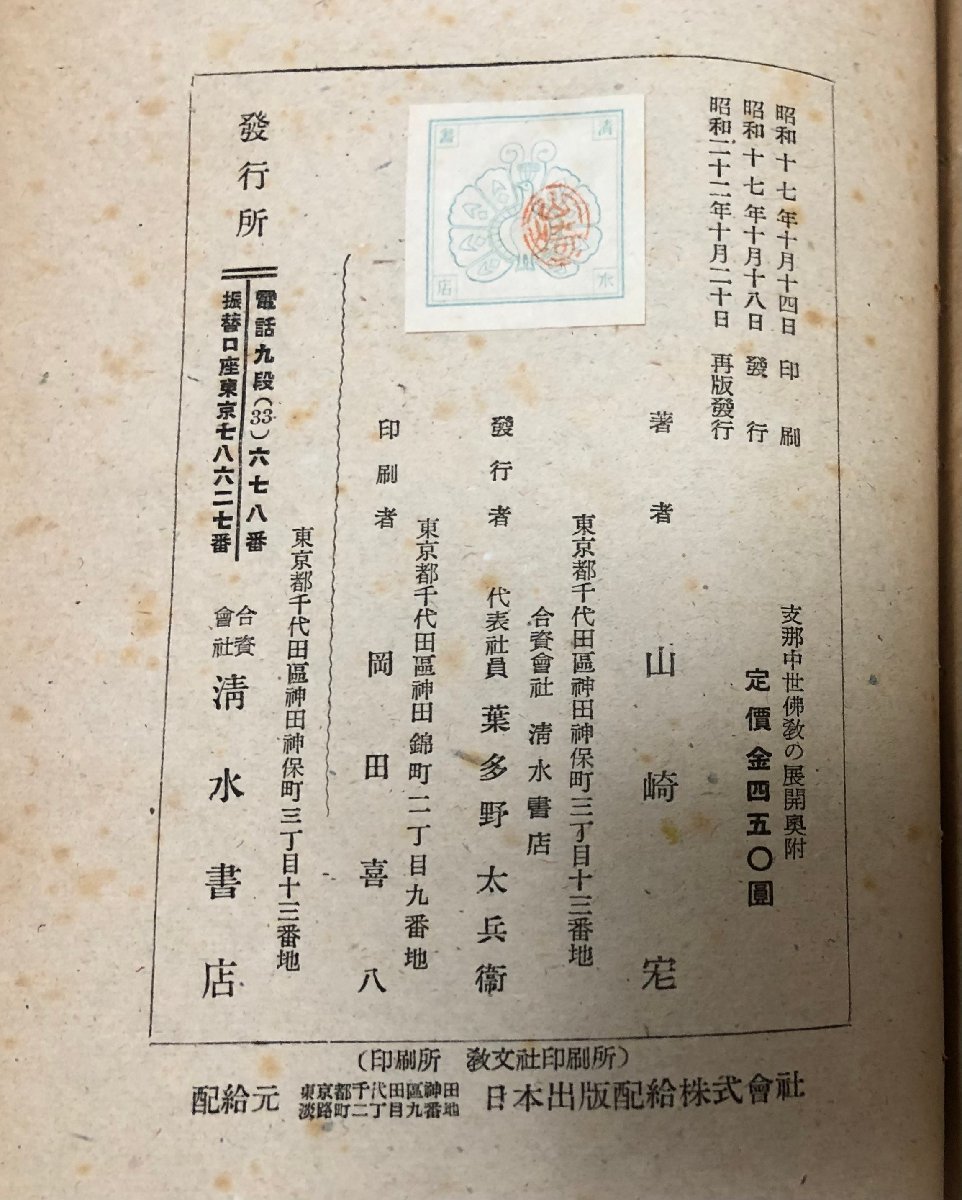 昭和十七年十月十四日 印刷
昭和十七年十月十八日 發行
昭和二十二年十月二十日 再版發行
支那中世佛敎の展開奧附
定價金四五〇圓
著者 山崎宏
東京都千代田區神田神保町三丁目十三番地
合資會社 淸水書店
發行者 代表社員 葉多野太兵衞
東京都千代田區神田錦町二丁目九番地
印刷者 岡田喜八
東京都千代田區神田神保町三丁目十三番地
發行所 合資會社 淸水書店
電話九段(33)六七八番
振替口座東京七八六二七番
淸水書店
(印刷所 敎文社印刷所)
配給元 東京都千代田區神田淡路町二丁目九番地 日本出版配給株式會社